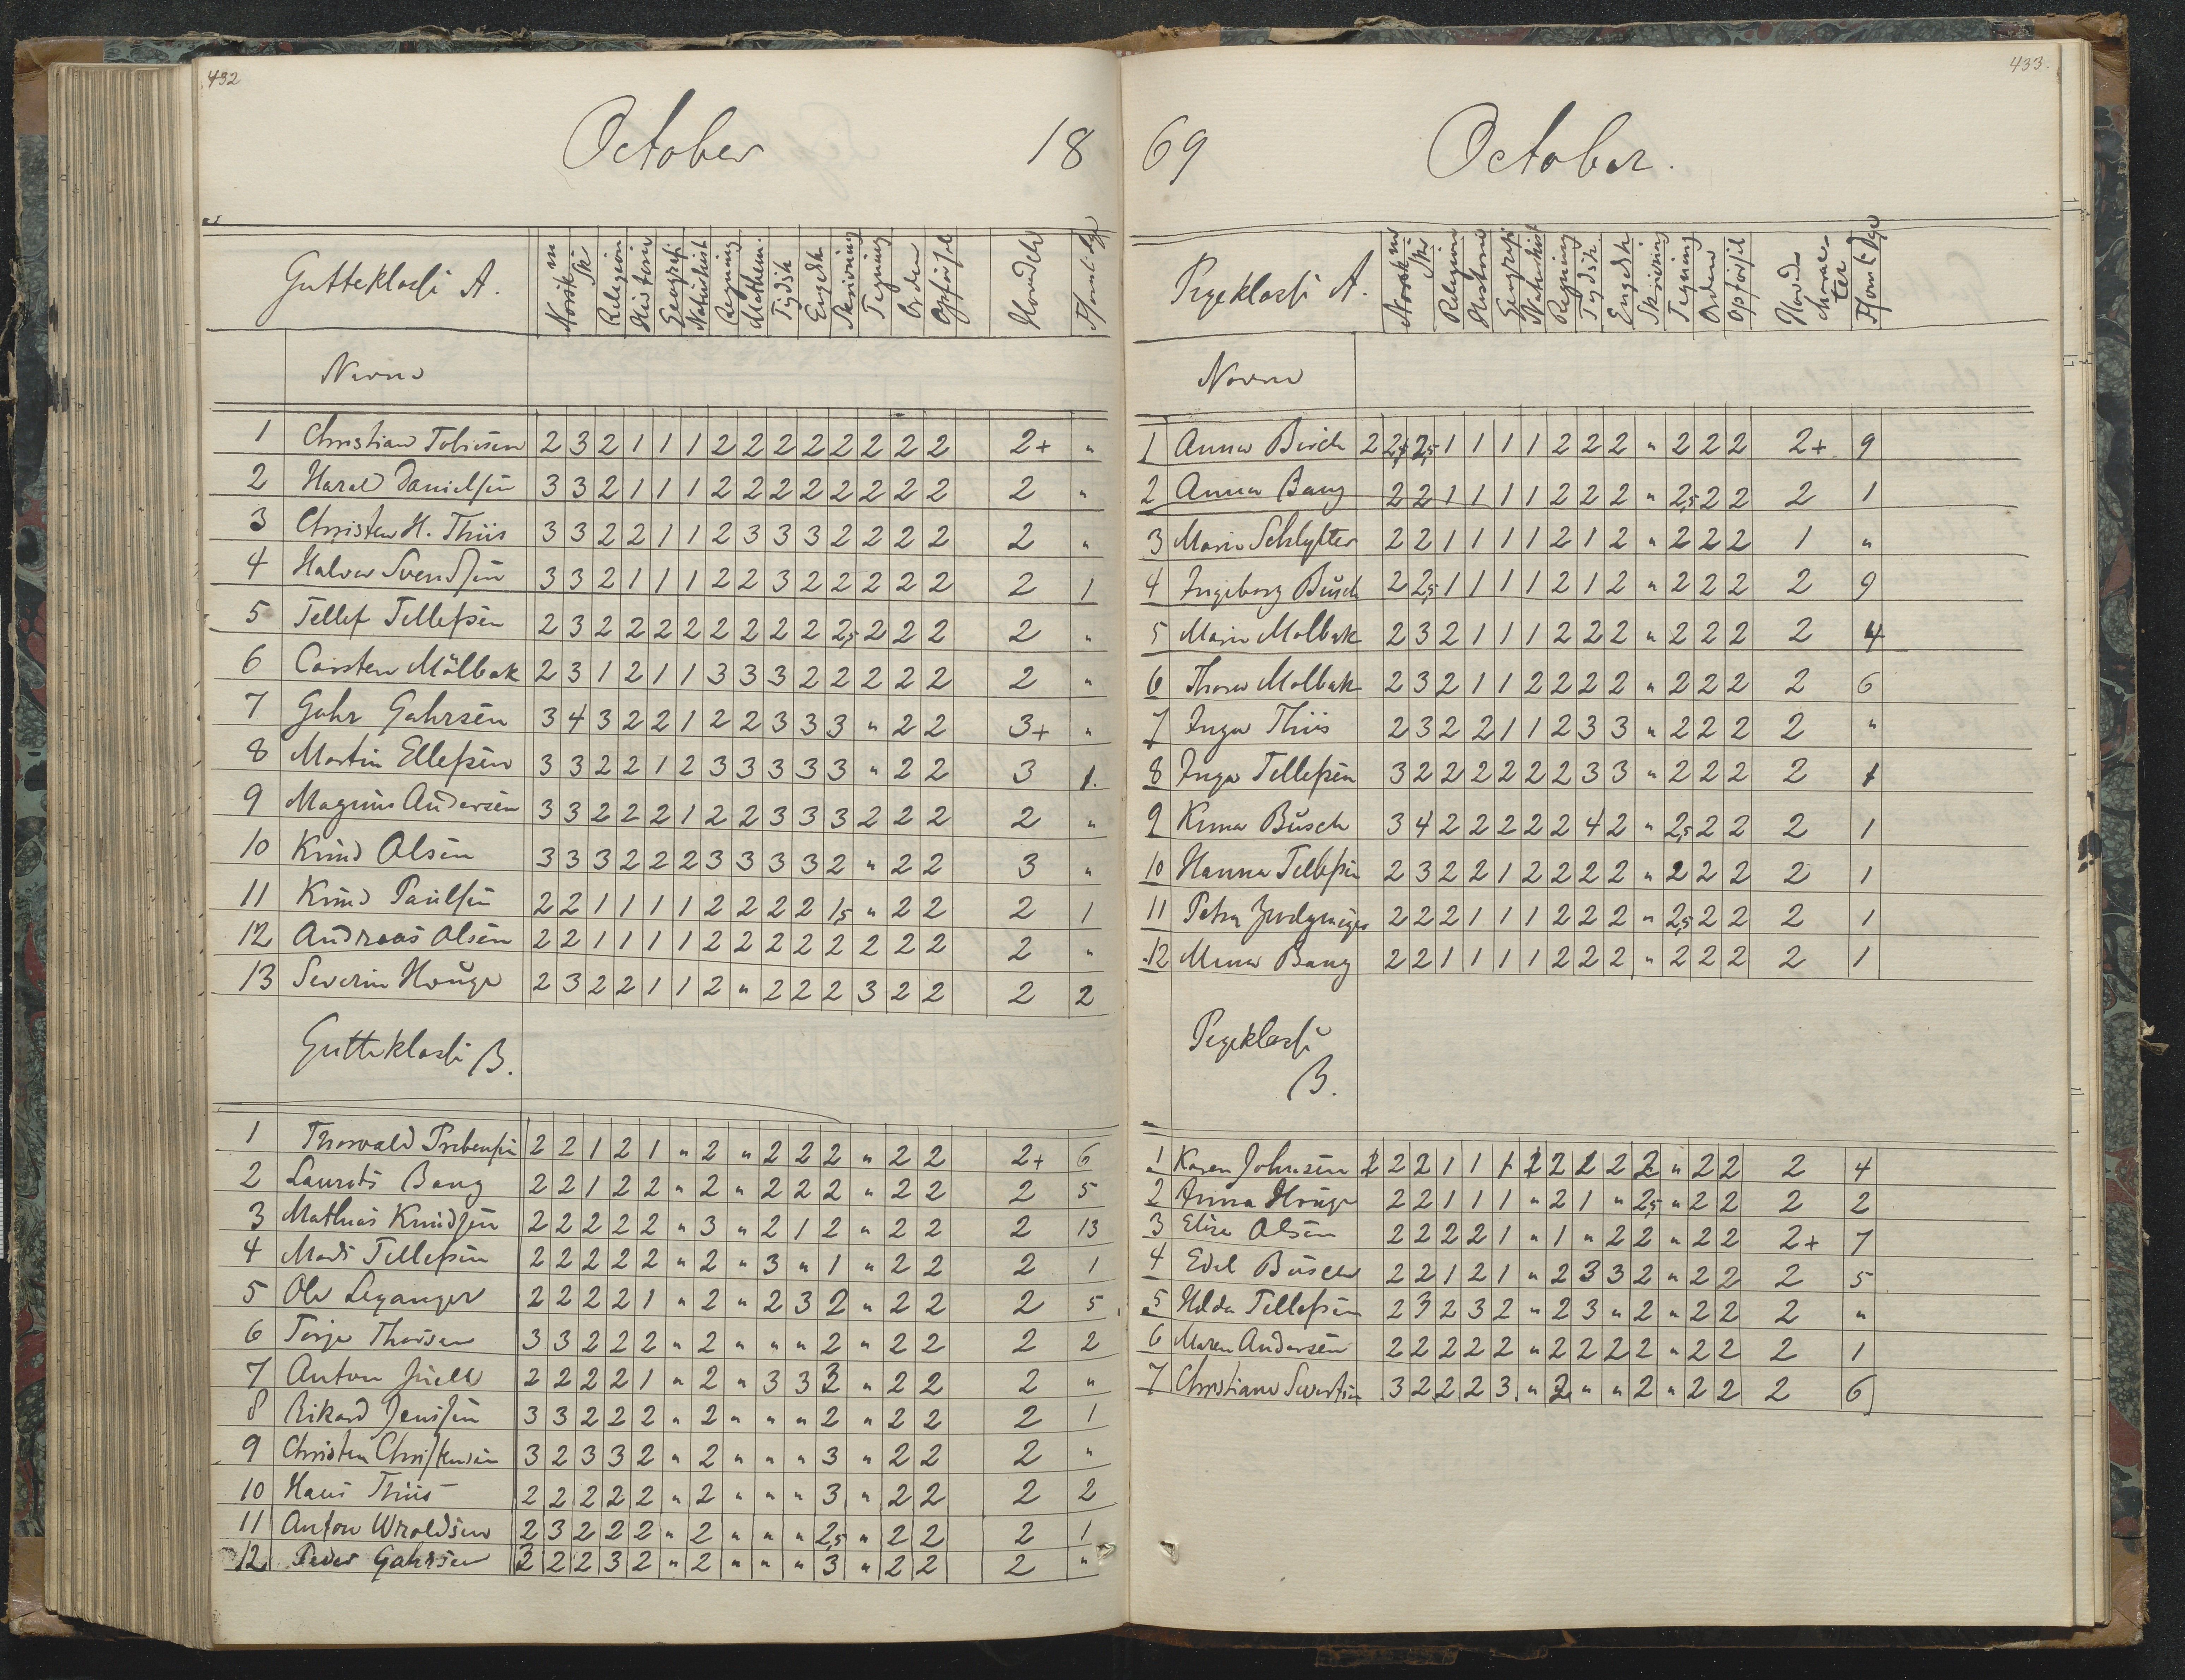 432
October 18
Gutteklasse A. Norsk m Sk Religion Historie Geografi Naturhist Regning Mathem. Tydsk Engelsk Skrivning Tegning Orden Opførsel Hovedch
Navne
1 Christian Tobiesen 2 3 2 1 1 1 2 2 2 2 2 2 2 2 2+ "
2 Harald Danielsen 3 3 2 1 1 1 2 2 2 2 2 2 2 2 2 "
3 Christen H. Thiis 3 3 2 2 1 1 2 3 3 3 2 2 2 2 2 "
4 Halvor Svendsen 3 3 2 1 1 1 2 2 3 2 2 2 2 2 2 1
5 Tellef Tellefsen 2 3 2 2 2 2 2 2 2 2 2,5 2 2 2 2 "
6 Carsten Mölbak 2 3 1 2 1 1 3 3 3 2 2 2 2 2 2 "
7 Gahr Gahrsen 3 4 3 2 2 1 2 2 3 3 3 " 2 2 3+ "
8 Martin Ellefsen 3 3 2 2 1 2 3 3 3 3 3 " 2 2 3 1.
9 Magnus Andersen 3 3 2 2 2 1 2 2 3 3 3 2 2 2 2 "
10 Knud Olsen 3 3 3 2 2 2 3 3 3 3 2 " 2 2 3 "
11 Knud Paulsen 2 2 1 1 1 1 2 2 2 2 1,5 " 2 2 2 1
12 Andreas Olsen 2 2 1 1 1 1 2 2 2 2 2 2 2 2 2 "
13 Severin Houge 2 3 2 2 1 1 2 " 2 2 2 3 2 2 2 2
Gutteklasse B.
1 Thorvald Prebensen 2 2 1 2 1 " 2 " 2 2 2 " 2 2 2+ 6
2 Laurits Bang 2 2 1 2 2 " 2 " 2 2 2 " 2 2 2 5
3 Mathias Knudsen 2 2 2 2 2 " 3 " 2 1 2 " 2 2 2 13
4 Mads Tellefsen 2 2 2 2 2 " 2 " 3 " 1 " 2 2 2 1
5 Ole Leganger 2 2 2 2 1 " 2 " 2 3 2 " 2 2 2 5
6 Terje Thorsen 3 3 2 2 2 " 2 " " " 2 " 2 2 2 2
7 Anton Juell 2 2 2 2 1 " 2 " 3 3 3 " 2 2 2 "
8 Rikard Jensen 3 3 2 2 2 " 2 " " " 2 " 2 2 2 1
9 Christen Christensen 3 2 3 3 2 " 2 " " " 3 " 2 2 2 "
10 Hans Thiis 2 2 2 2 2 " 2 " " " 3 " 2 2 2 2
11 Anton Wroldsen 2 3 2 2 2 " 2 " " " 2,5 " 2 2 2 1
12 Peder Gahrsen 3 2 2 3 2 " 2 " " " 3 " 2 2 2 "
433.
69 October.
Pigeklasse A. Norsk m Sk Religion Historie Geografi Naturhist Regning Tydsk Engelsk Skrivning Tegning Orden Opførsel Hovedcharacter
Navne
1 Anna Birch 2 2,5 2,5 1 1 1 1 2 2 2 " 2 2 2 2+ 9
2 Anna Bang 2 2 1 1 1 1 2 2 2 " 2,5 2 2 2 1
3 Marie Schlytter 2 2 1 1 1 1 2 1 2 " 2 2 2 1 "
4 Ingeborg Busch 2 2,5 1 1 1 1 2 1 2 " 2 2 2 2 9
5 Marie Molbak 2 3 2 1 1 1 2 2 2 " 2 2 2 2 4
6 Thora Molbak 2 3 2 1 1 2 2 2 2 " 2 2 2 2 6
7 Inga Thiis 2 3 2 2 1 1 2 3 3 " 2 2 2 2 "
8 Inga Tellefsen 3 2 2 2 2 2 2 3 3 " 2 2 2 2 1
9 Kima Busch 3 4 2 2 2 2 2 4 2 " 2,5 2 2 2 1
10 Hanna Tellefsen 2 3 2 2 1 2 2 2 2 " 2 2 2 2 1
11 Petra 2 2 2 1 1 1 2 2 2 " 2,5 2 2 2 1
12 Mina Bang 2 2 1 1 1 1 2 2 2 " 2 2 2 2 1
Pigeklasse
B.
1 Karen Johnsen 2 2 2 1 1 1 2 2 2 2 2 " 2 2 2 4
2 Anna Houge 2 2 1 1 1 " 2 1 " 2,5 " 2 2 2 2
3 Elise Olsen 2 2 2 2 1 " 1 " 2 2 " 2 2 2+ 7
4 Edel Busch 2 2 1 2 1 " 2 3 3 2 " 2 2 2 5
5 Hilda Tellefsen 2 3 2 3 2 " 2 3 " 2 " 2 2 2 "
6 Maren Andersen 2 2 2 2 2 " 2 2 2 2 " 2 2 2 1
7 Christiane 3 2 2 2 3 " 2 " " 2 " 2 2 2 6